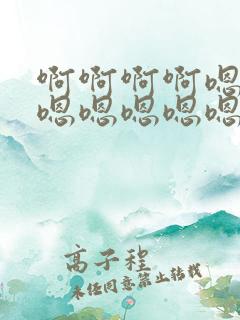 啊啊啊啊嗯
嗯嗯嗯嗯嗯
高子程
未经同意禁止转载